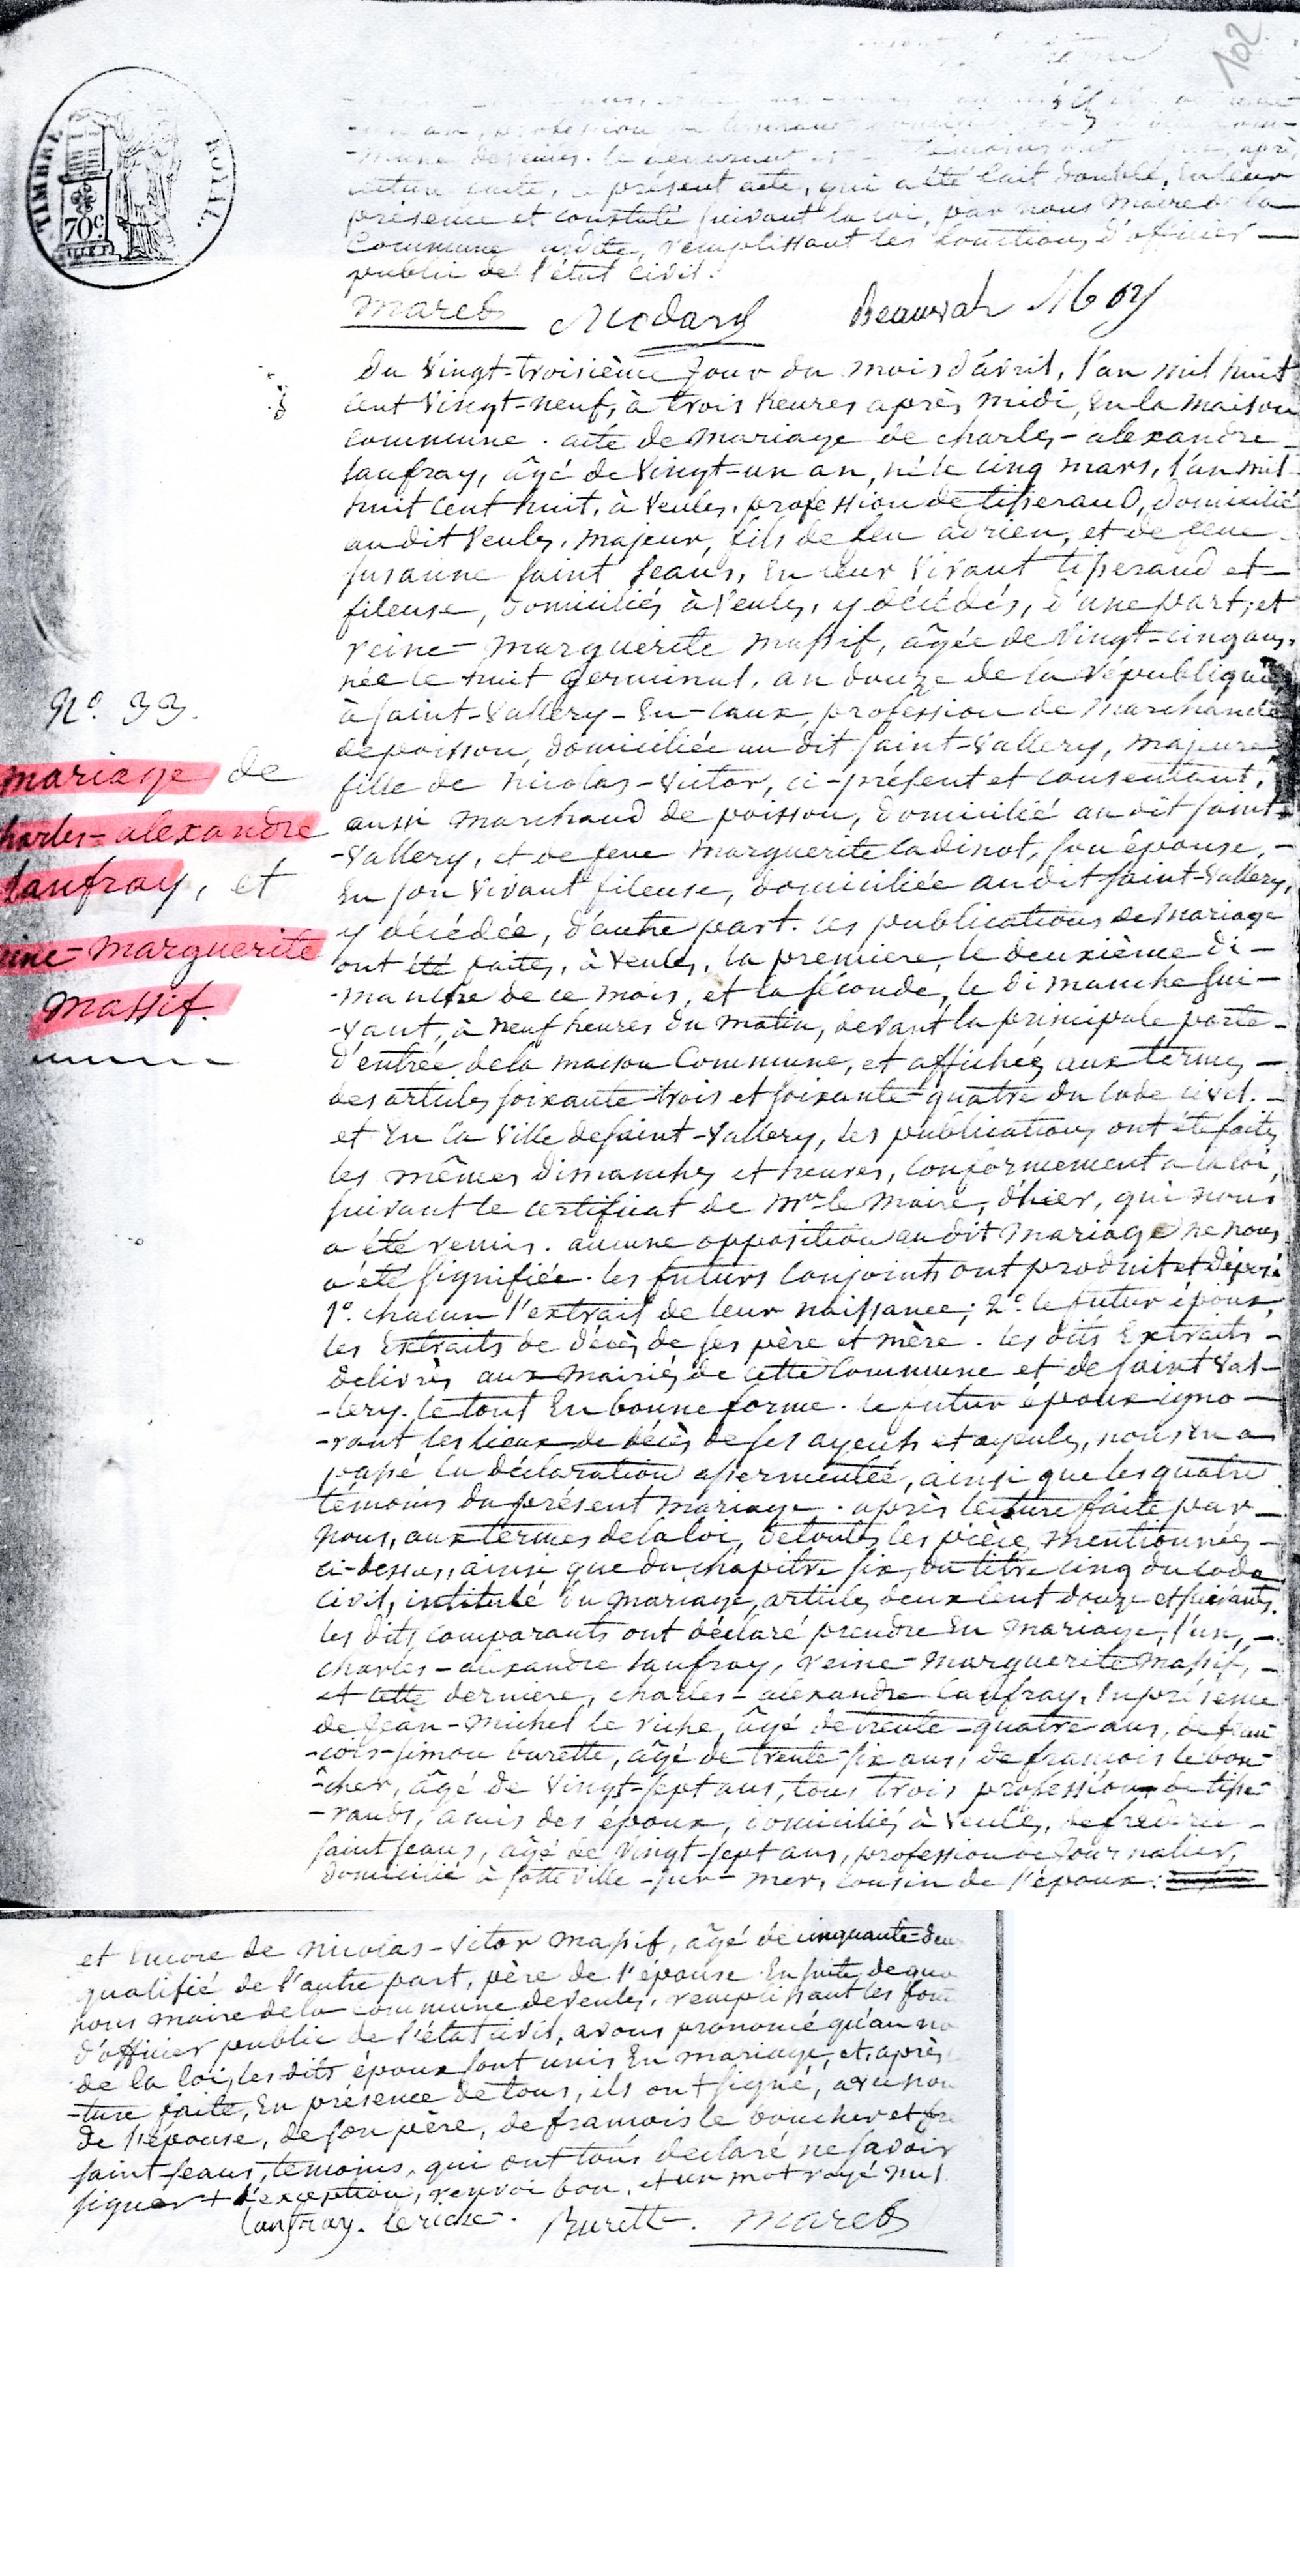 102
TIMBRE ROYAL
70c
présent acte, qui a été fait double, en leur
présence et constaté suivant la loi, par nous Maire de la
Commune susdite, remplissant les fonctions d'officier
public de l'état civil.
Marcb Beauvah
Du vingt-troisième jour du mois d'avril, l'an mil huit
cent vingt-neuf, à trois heures après midi, en la maison
commune. acte de mariage de charles-alexandre
Laufray, âgé de vingt-un an, né le cinq mars, l'an mil
huit cent huit, à Veules, profession de tisserand, domicilié
au dit Veules, majeur, fils de feu adrien, et de feue
susanne saint seans, en leur vivant tisserand et
fileuse, domiciliés à Veules, y décédés, d'une part; et
reine-marguerite massif, âgée de vingt-cinq ans,
née le huit germinal, an douze de la république,
à saint-Vallery-en-caux, profession de Marchande
de poisson, domiciliée au dit saint-Vallery, majeure
fille de nicolas-victor, ci-présent et consentant,
aussi marchand de poisson, domicilié au dit saint-
-Vallery, et de feue marguerite cadinot, son épouse,
en son vivant fileuse, domiciliée au dit saint-Vallery,
y décédée, d'autre part. les publications de mariage
ont été faites, à Veules, la première, le deuxième di-
-manche de ce mois, et la séconde, le dimanche sui-
-vant, à neuf heures du matin, devant la principale porte
d'entrée de la maison commune, et affichées aux termes
des articles soixante-trois et soixante-quatre du code civil.
et en la ville de saint-Vallery, les publications ont été faites
les mêmes dimanches et heures, conformement a la loi,
suivant le certificat de Mr le Maire, d'hier, qui nous
a été remis. aucune opposition au dit mariage ne nous
a été signifiée. les futurs conjoints ont produit et déposé
1º. chacun l'extrait de leur naissance; 2º. le futur époux,
les extraits de décès de ses père et mère. les dits extraits
délivrés aux mairies de cette commune et de saint val-
-lery. le tout en bonne forme. le futur époux igno-
-rant les lieux de décès de ses ayeuls et ayeules, nous en a
passé la déclaration assermentée, ainsi que les quatre
témoins du présent mariage. après lecture faite par
nous, aux termes de la loi, de toutes les pièces mentionnées
ci-dessus, ainsi que du chapitre six, du titre cinq du code
civil, intitulé du mariage, articles deux cent douze et suivants.
les dits comparants ont déclaré prendre en mariage, l'un,
charles-alexandre Laufray, reine-marguerite massif,
et cette dernière, charles-alexandre Laufray. en présence
de jean-michel le riche, âgé de trente-quatre ans, de fran-
-cois-simon burette, âgé de trente-six ans, de francois le bou-
-cher, âgé de vingt-sept ans, tous trois professions de tisse-
-rands, amis des époux, domiciliés à Veules, de frederic
saint seans, âgé de vingt-sept ans, profession de journalier,
domicilié à sotteville-sur-mer, cousin de l'époux.
Nº. 33.
mariage de
harles-alexandre
Laufray, et
eine-marguerite
massif.
et encore de nicolas-victor massif, âgé de cinquante-deu
qualifié de l'autre part, père de l'épouse. Ensuite de quo
nous maire de la commune de Veules, remplissant les fon
d'officier public de l'état civil, avons prononcé qu'au no
de la loi, les dits époux sont unis en mariage, et après
-ture faite, en présence de tous, ils ont signé, avec nou
de l'épouse, de son père, de francois le boucher et fre
saint-seans, témoins, qui ont tous déclaré ne savoir
signer + l'exception, renvoi bon. et un mot rayé nul.
Laufray. leriche. Burette. Marcb